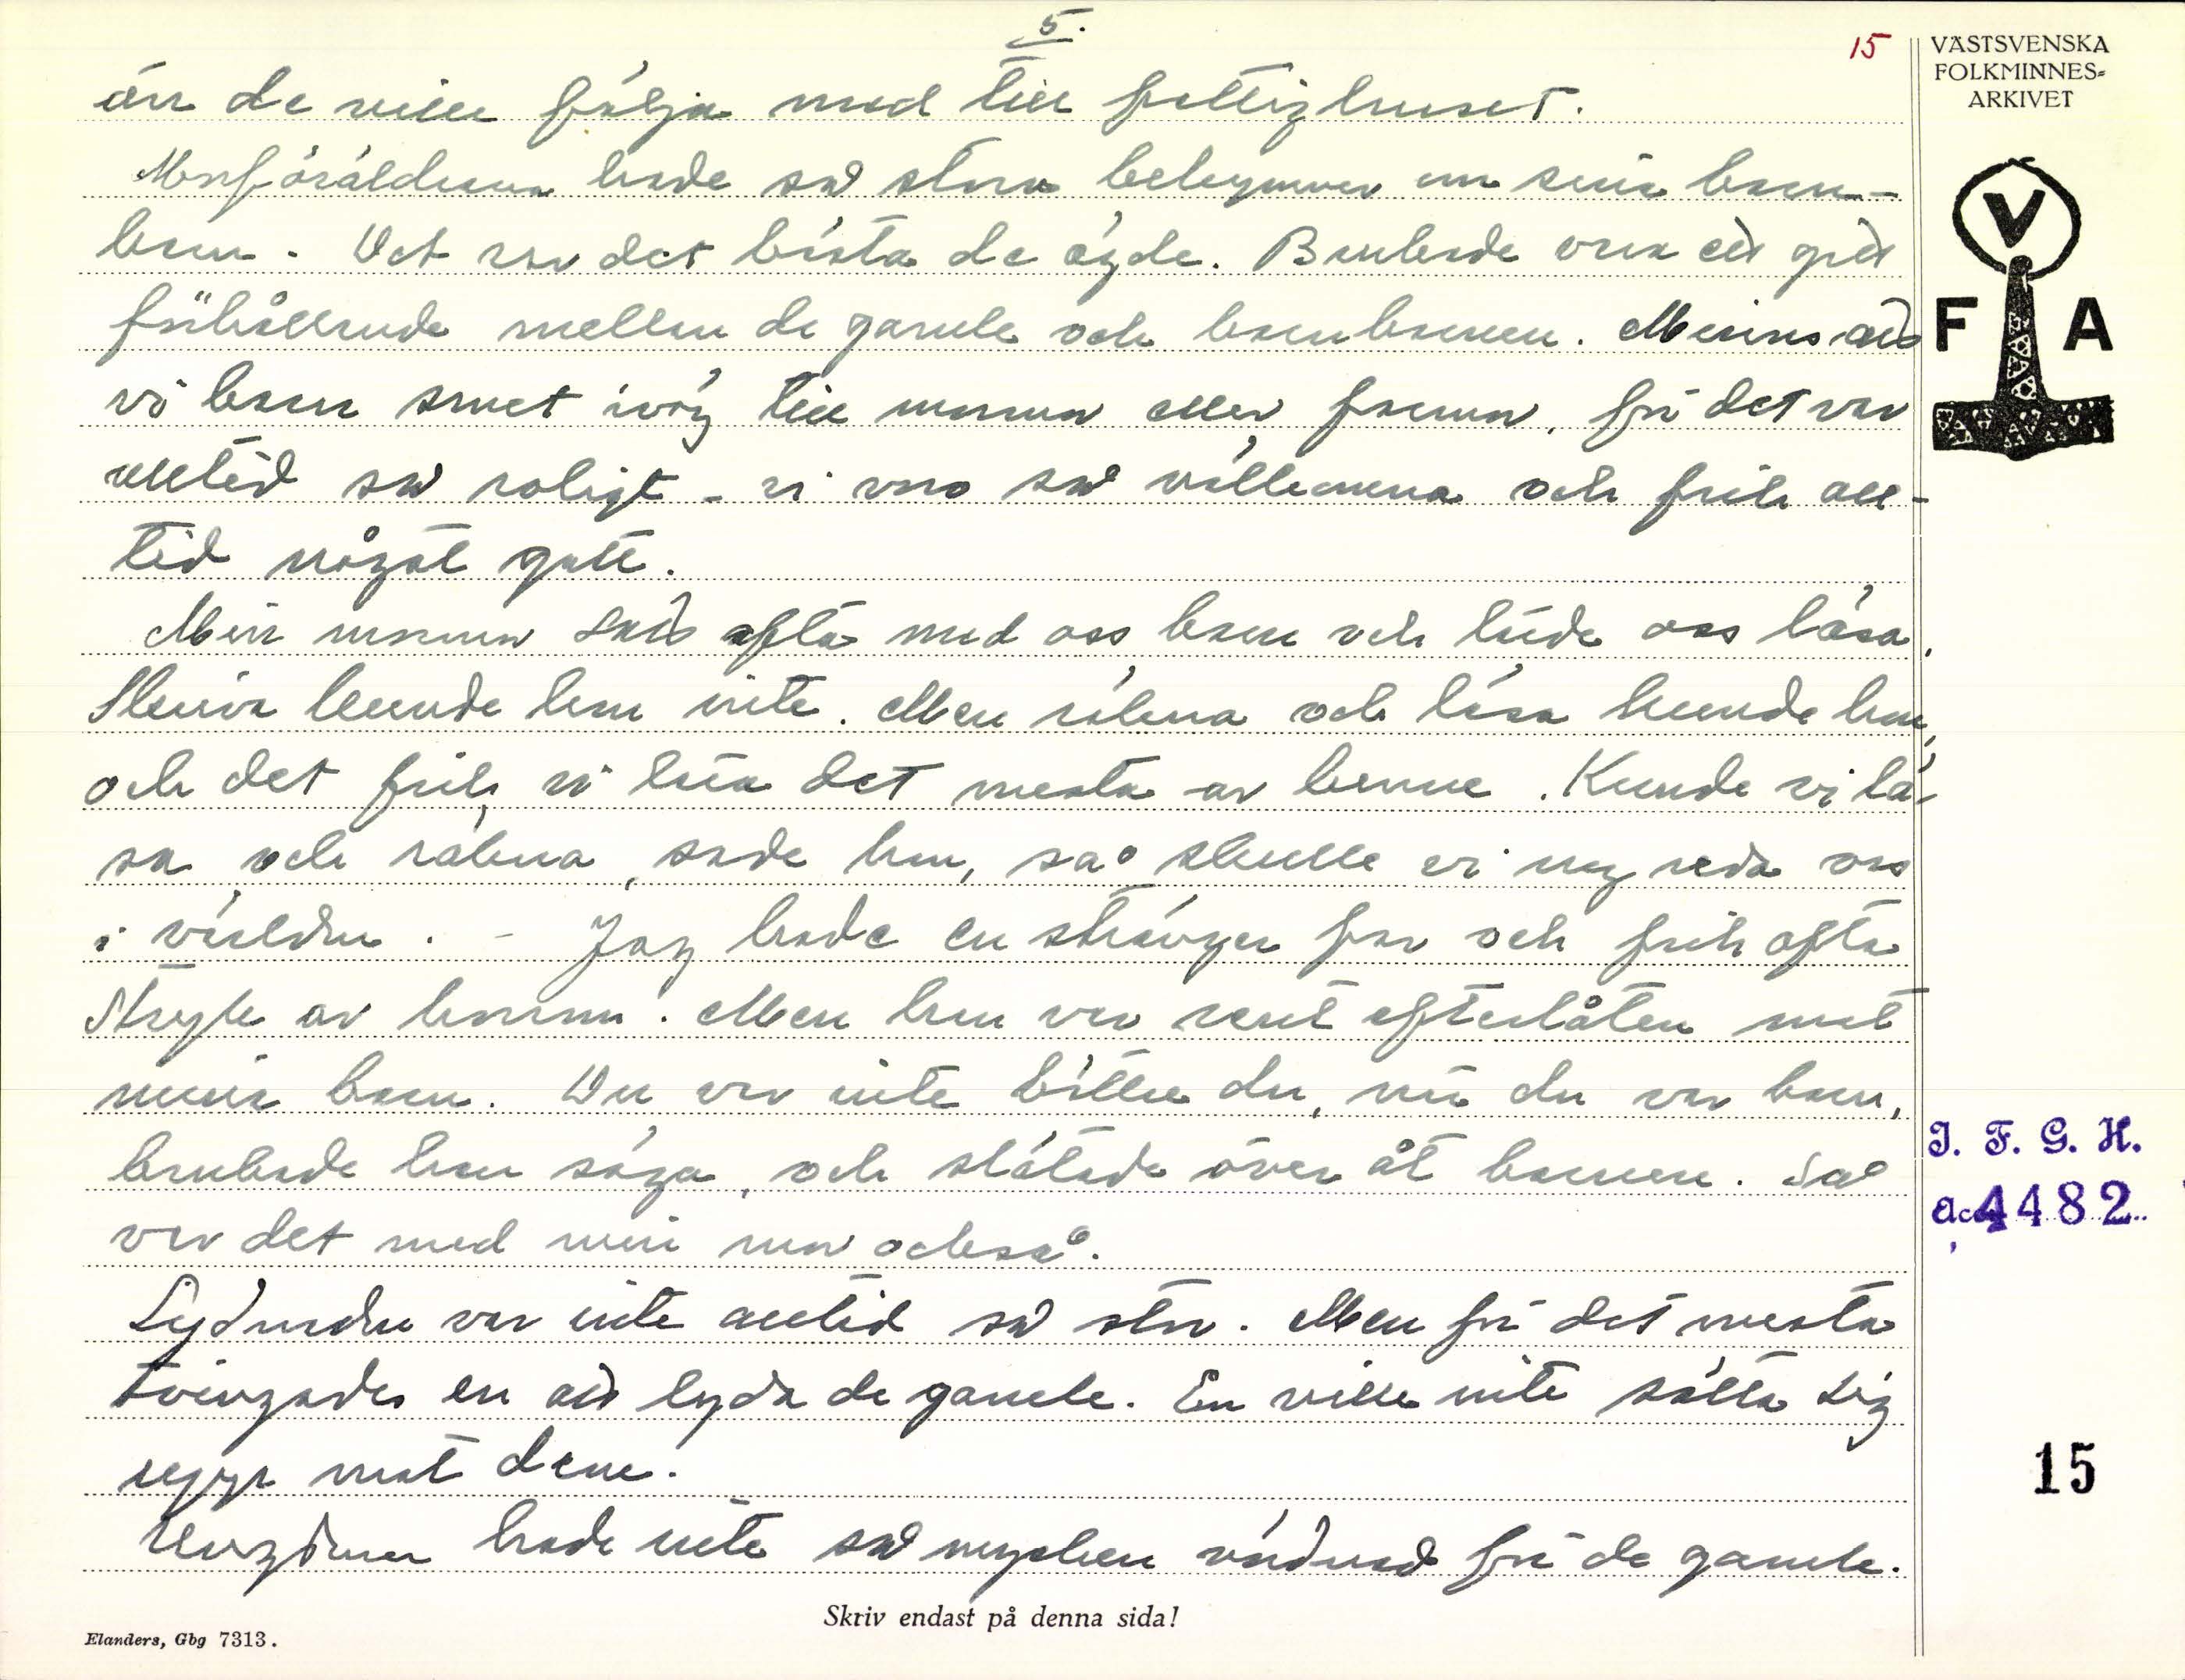 5.
15
än de ville följa med till fattighuset.
Morföräldrarna hade så stora bekymmer om sina barn-
barn. Det var det bästa de ägde. Brukade vara ett gott
förhållande mellan de gamle och barnbarnen. Minns att
vi barn smet iväg till mormor eller farmor, för det var
alltid så roligt - vi voro så välkomna och fick all-
tid något gott.
Min mormor satt ofta med oss barn och lärde oss läsa.
Skriva kunde hon inte. Men räkna och läsa kunde hon,
och det fick vi lära det mesta av henne. Kunde vi lä-
sa och räkna, sade hon, så skulle vi nog reda oss
i världen. - Jag hade en sträng far och fick ofta
Stryk av honom. Men han var rent efterlåten mot
mina barn. Du var inte bättre du, när du var barn,
brukade han säga, och slätade över åt barnen. Så
var det med min mor också.
Lydnaden var inte alltid så stor. Men för det mesta
tvingades en att lyda de gamle. En ville inte sätta sig
upp mot dem.
Ungdomen hade inte så mycken vördnad för de gamle.
Skriv endast på denna sida!
Elanders, Gbg 7313.
VÄSTSVENSKA
FOLKMINNES-
ARKIVET
V
F A
I. F. G. H.
Acc. 4482
15